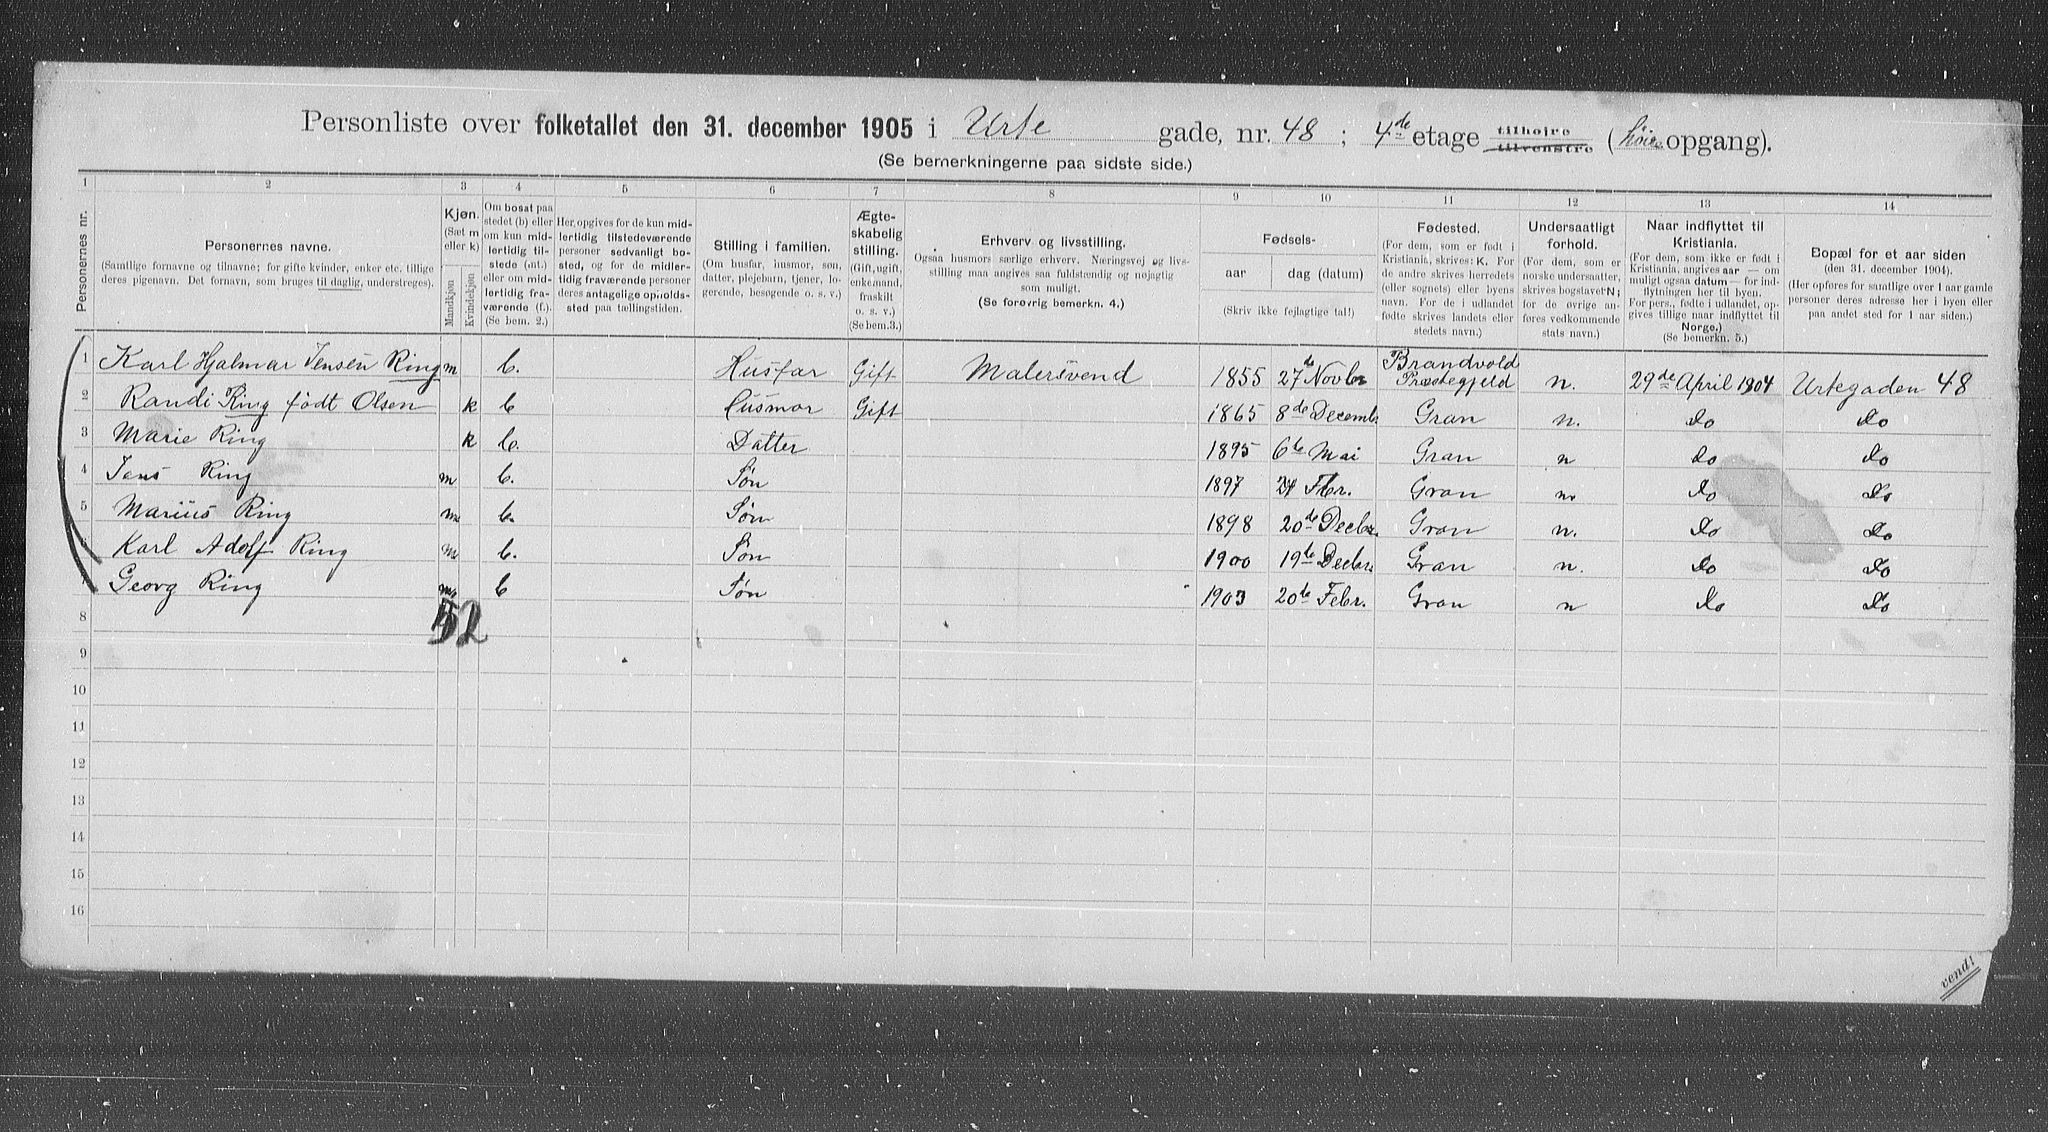 Personliste over folketallet den 31. december 1905 i Urte gade, nr. 48 ; 4de etage tilhøjre tilvenstre (høire opgang).
(Se bemerkningerne paa sidste side.)
1 2 3 4 5 6 7 8 9 10 11 12 13 14
Personernes nr.
Personernes navne.
(Samtlige fornavne og tilnavne; for gifte kvinder, enker etc. tillige
deres pigenavn. Det fornavn, som bruges til daglig, understreges).
Kjøn.
(Sæt m
eller k)
Mandkjøn
Kvindekjøn
Om bosat paa
stedet (b) eller
om kun mid-
lertidig til-
stede (mt.)
eller om mid-
lertidig fra-
værende (f.).
(Se bem. 2.)
Her, opgives for de kun mid-
lertidig tilstedeværende
personer sedvanlig bo-
sted, og for de midler-
tidig fraværende personer
deres antagelige opholds-
sted paa tællingstiden.
Stilling i familien.
(Om husfar, husmor, søn,
datter, plejebarn, tjener, lo-
gerende, besøgende o. s. v.)
Ægte-
skabelig
stilling.
(Gift, ugift,
enkemand,
fraskilt
o. s. v.)
(Se bem. 3.)
Erhverv og livsstilling.
Ogsaa husmors særlige erhverv. Næringsvej og livs-
stilling maa angives saa fuldstændig og nøjagtig
som muligt.
(Se forøvrig bemerkn. 4.)
Fødsels-
aar
dag (datum)
(Skriv ikke fejlagtige tal!)
Fødested.
(For dem, som er født i
Kristiania, skrives: K. For
de andre skrives herredets
(eller sognets) eller byens
navn. For de i udlandet
fødte skrives landets eller
stedets navn.)
Undersaatligt
forhold.
(For dem, som er
norske undersaatter,
skrives bogstavet N;
for de øvrige an-
føres vedkommende
stats navn.)
Naar indflyttet til
Kristiania.
(For dem, som ikke er født i
Kristiania, angives aar — om
muligt ogsaa datum — for ind-
flytningen her til byen.
For pers., fødte i udlandet, op-
gives tillige naar indflyttet til
Norge.)
(Se bemerkn. 5.)
Bopæl for et aar siden
(den 31. december 1904).
(Her opføres for samtlige over 1 aar gamle
personer deres adresse her i byen eller
paa andet sted for 1 aar siden.)
1 Karl Hjalmar Jensen Ring m b. Husfar Gift Malersvend 1855 27de Novbr Brandvold Præstegjeld n. 29de April 1904 Urtegaden 48
2 Randi Ring født Olsen k b Husmor Gift 1865 8de Decemb. Gran n. do do
3 Marie Ring k b. Datter 1895 6te Mai Gran n do do
4 Jens Ring m b. Søn 1897 24 Fbr. Gran n. do do
5 Marius Ring m. b. Søn 1898 20de Decbr. Gran n. do do
6 Karl Adolf Ring m b. Søn 1900 19te Decbr. Gran n. do do
7 Georg Ring m b Søn 1903 20de Febr. Gran n do do
8
52
9
10
11
12
13
14
15
16
vend!